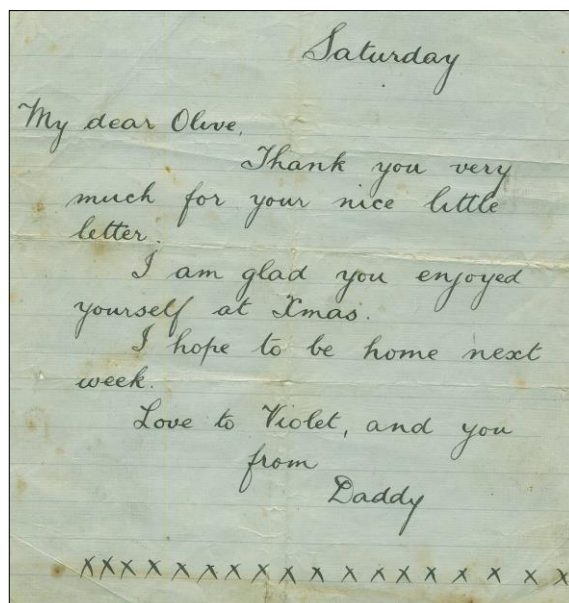 Saturday
My dear Olive,
Thank you very
much for your nice little
letter.
I am glad you enjoyed
yourself at Xmas.
I hope to be home next
week.
Love to Violet, and you
from
Daddy
XXXXXXXXXXXXXXXXXXX